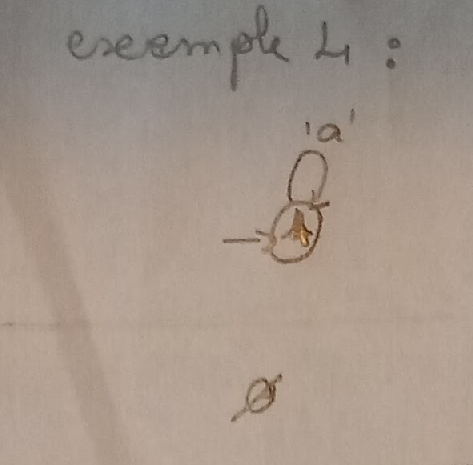 exemple 4 :
'a'
A
∅